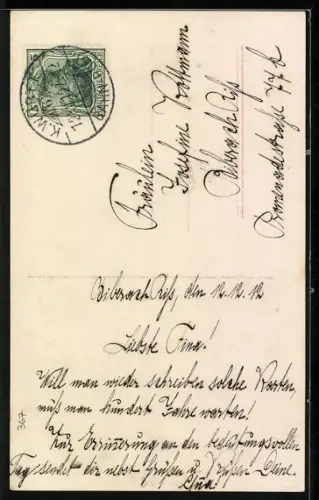 Fräulein
Josefine Kottmann
Biberach Riß
Promenadestraße 77 b
Biberach Riß, den 12.12.12
Liebste Fina!
Will man wieder schreiben solche Karten,
muß man hundert Jahre warten!
Zur Erinnerung an den bedeutungsvollen
Tag sendet dir nebst Grüßen u. Küßen Deine
367